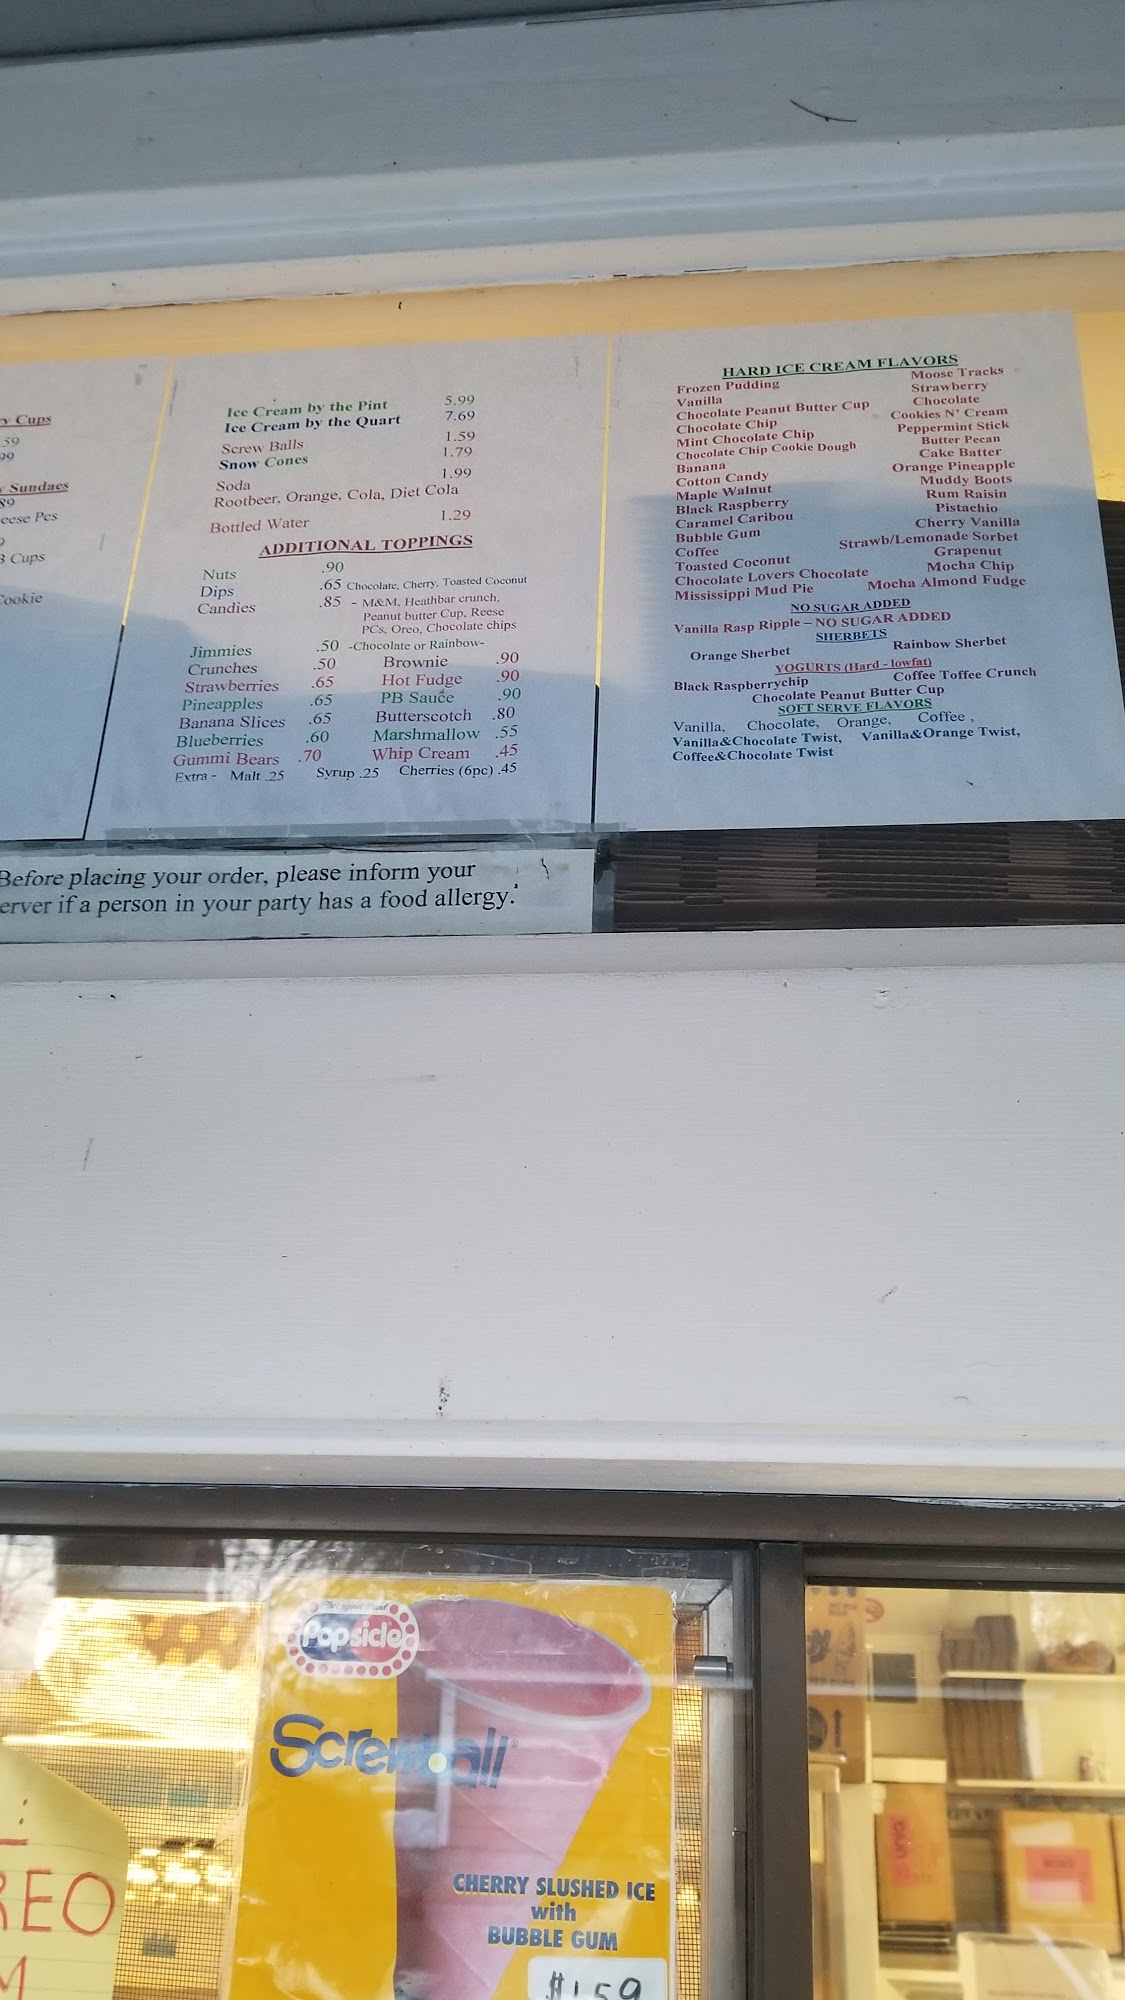 y Cups
.59
99
y Sundaes
89
eese Pcs
9
B Cups
Cookie
Ice Cream by the Pint 5.99
Ice Cream by the Quart 7.69
Screw Balls 1.59
Snow Cones 1.79
Soda 1.99
Rootbeer, Orange, Cola, Diet Cola
Bottled Water 1.29
ADDITIONAL TOPPINGS
Nuts .90
Dips .65 Chocolate, Cherry, Toasted Coconut
Candies .85 - M&M, Heathbar crunch,
Peanut butter Cup, Reese
PCs, Oreo, Chocolate chips
Jimmies .50 -Chocolate or Rainbow-
Crunches .50 Brownie .90
Strawberries .65 Hot Fudge .90
Pineapples .65 PB Sauce .90
Banana Slices .65 Butterscotch .80
Blueberries .60 Marshmallow .55
Gummi Bears .70 Whip Cream .45
Extra - Malt .25 Syrup .25 Cherries (6pc) .45
HARD ICE CREAM FLAVORS
Frozen Pudding Moose Tracks
Vanilla Strawberry
Chocolate Peanut Butter Cup Chocolate
Chocolate Chip Cookies N' Cream
Mint Chocolate Chip Peppermint Stick
Chocolate Chip Cookie Dough Butter Pecan
Banana Cake Batter
Cotton Candy Orange Pineapple
Maple Walnut Muddy Boots
Black Raspberry Rum Raisin
Caramel Caribou Pistachio
Bubble Gum Cherry Vanilla
Coffee Strawb/Lemonade Sorbet
Toasted Coconut Grapenut
Chocolate Lovers Chocolate Mocha Chip
Mississippi Mud Pie Mocha Almond Fudge
NO SUGAR ADDED
Vanilla Rasp Ripple – NO SUGAR ADDED
SHERBETS
Orange Sherbet Rainbow Sherbet
YOGURTS (Hard - lowfat)
Black Raspberrychip Coffee Toffee Crunch
Chocolate Peanut Butter Cup
SOFT SERVE FLAVORS
Vanilla, Chocolate, Orange, Coffee ,
Vanilla&Chocolate Twist, Vanilla&Orange Twist,
Coffee&Chocolate Twist
Before placing your order, please inform your
erver if a person in your party has a food allergy.
Popsicle
Screwball
CHERRY SLUSHED ICE
with
BUBBLE GUM
$1.59
REO
M